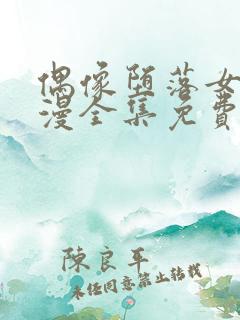 偶像堕落女
漫全集免費
陳良平
未经同意禁止转载